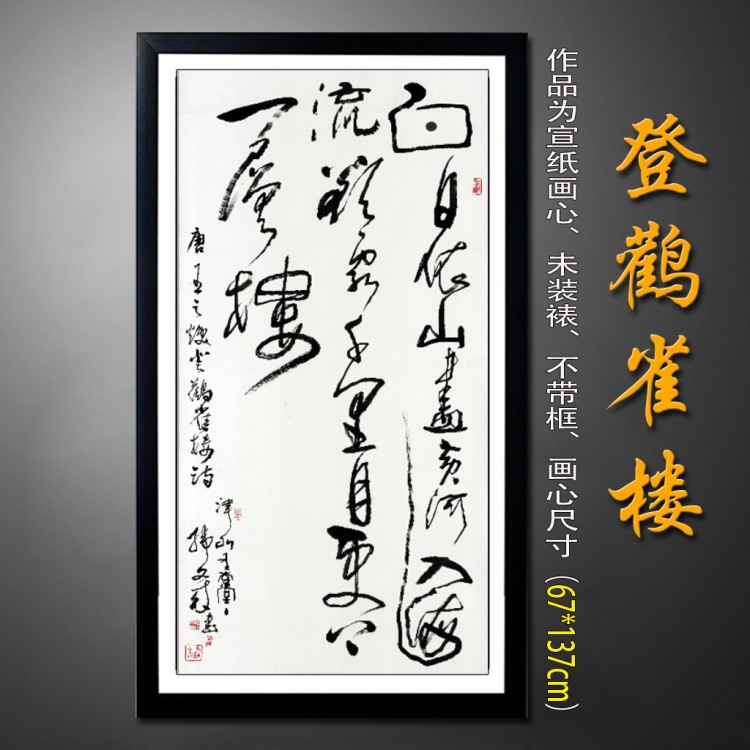 登鹳雀楼
作品为宣纸画心、未装裱、不带框、画心尺寸(67*137cm)
白日依山盡黄河入海
流欲穷千里目更上
一层楼
唐王之焕登鹳雀楼诗